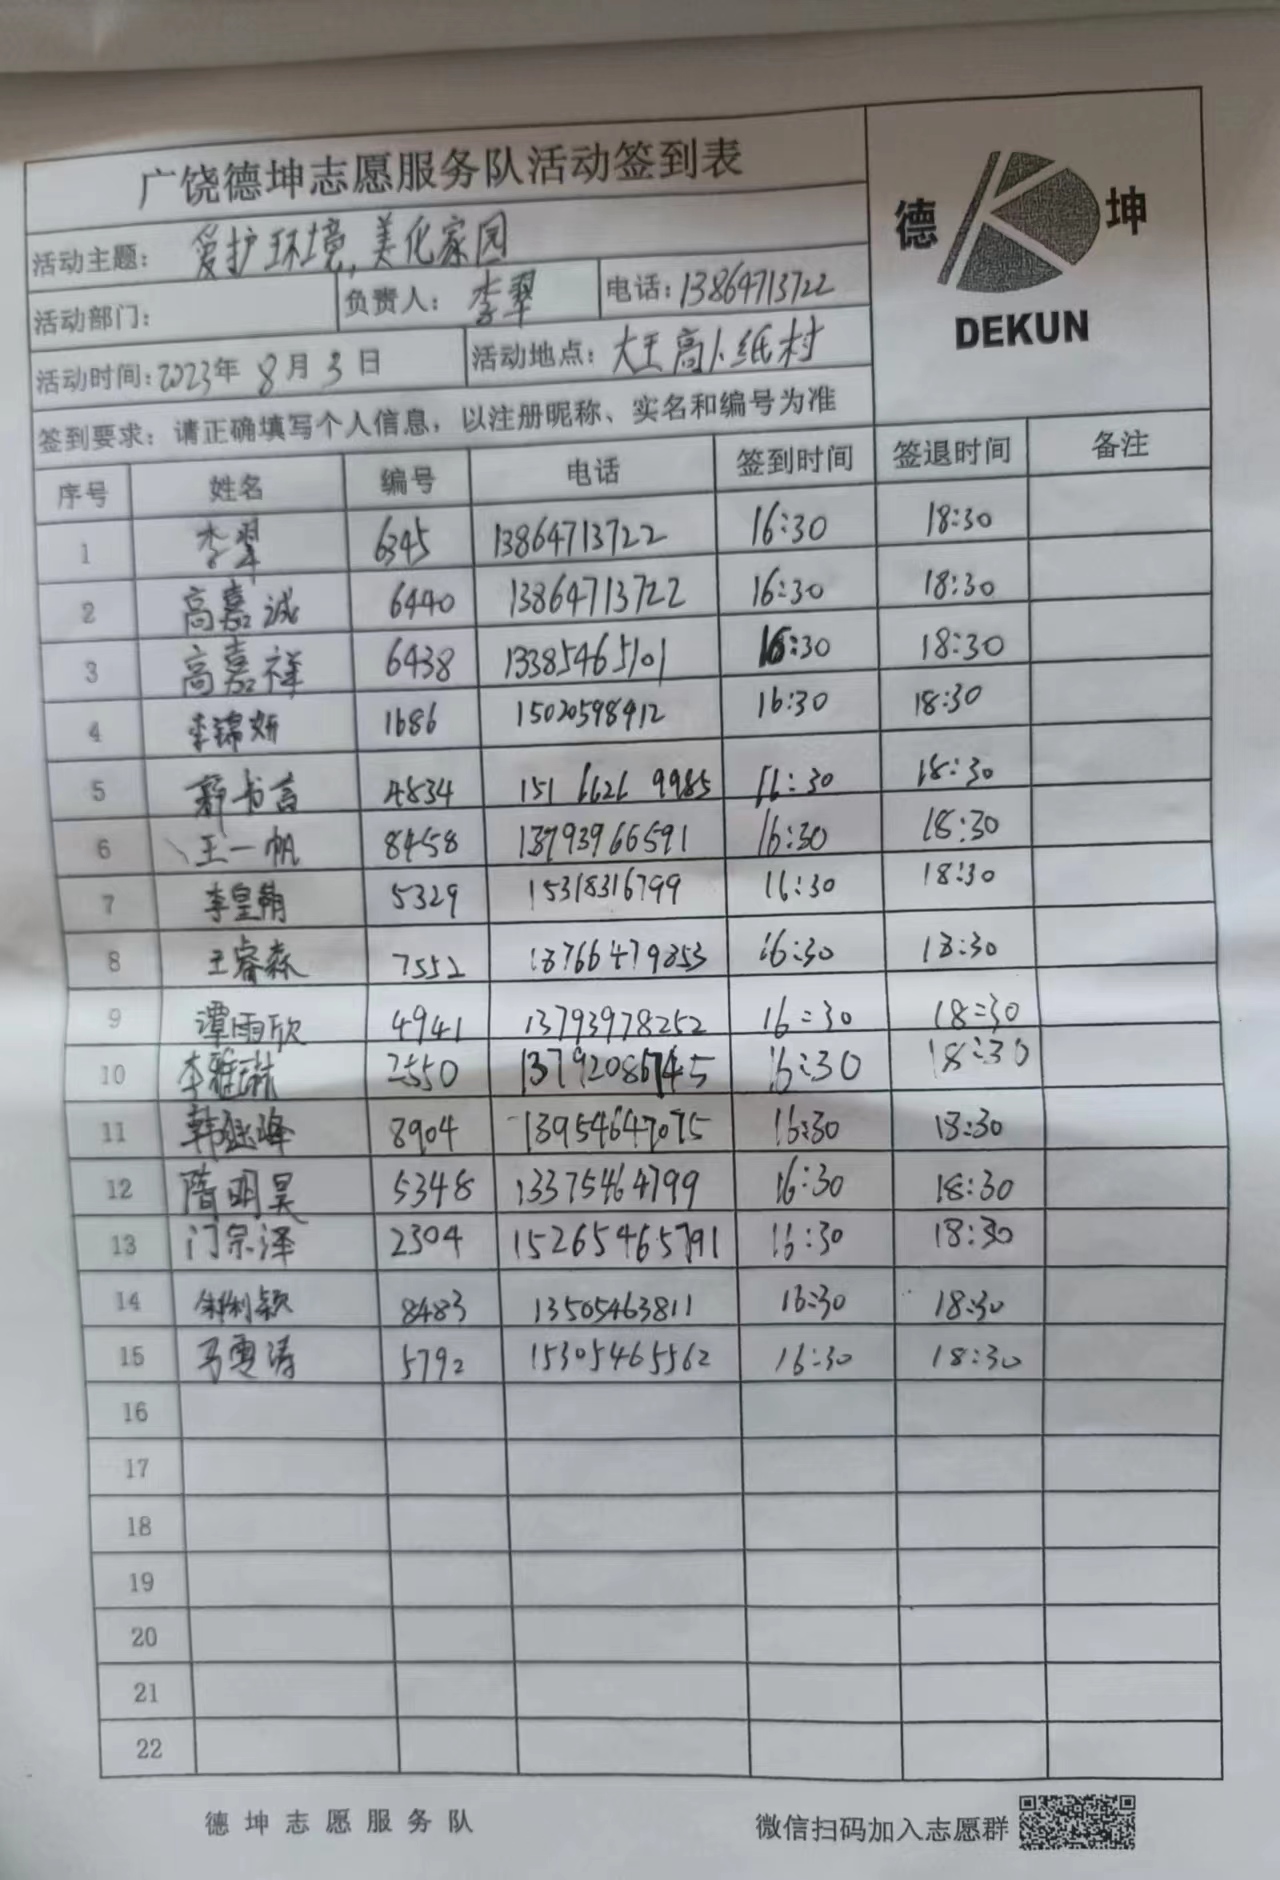 广饶德坤志愿服务队活动签到表
德 坤
DEKUN
活动主题: 爱护环境,美化家园
活动部门: 负责人: 李翠 电话: 13864713722
活动时间: 2023年 8月 3日 活动地点: 大王高卜纸村
签到要求: 请正确填写个人信息, 以注册昵称、实名和编号为准
序号 姓名 编号 电话 签到时间 签退时间 备注
1 李翠 6345 13864713722 16:30 18:30
2 高嘉诚 6440 13864713722 16:30 18:30
3 高嘉祥 6438 13385465101 16:30 18:30
4 李锦妍 1686 15020598412 16:30 18:30
5 书言 4834 151 6626 9985 16:30 18:30
6 王一帆 8458 13793966591 16:30 18:30
7 李皇 5329 15318316799 16:30 18:30
8 王睿森 7552 18766479853 16:30 18:30
9 谭雨欣 4941 13793978252 16:30 18:30
10 李雅琳 2550 13792086745 16:30 18:30
11 韩继峰 8904 13954647075 16:30 18:30
12 隋明昊 5348 13375464799 16:30 18:30
13 门宗泽 2304 15265465791 16:30 18:30
14 利颖 8483 13505463811 16:30 18:30
15 马雪涛 5792 15305465562 16:30 18:30
16
17
18
19
20
21
22
德坤志愿服务队 微信扫码加入志愿群